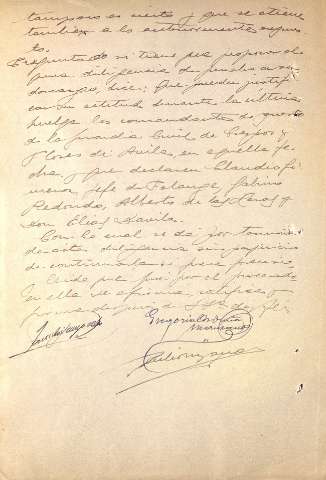 tampoco es cierto y que se atiene
tambien a lo anteriormente expues
to.
Preguntado si tiene que proponer al
guna diligencia de prueba en su
descargo, dice: Que pueden justifi
car su actitud durante la última
huelga los comandantes de puesto
de la guardia Civil de Crespos y
Flores de Avila, en aquella fe
cha y que declaren Claudio Ji
menez, Jefe de Falange, Gabino
Redondo, Alberto de las Heras y
Don Elias Davila.
Con lo cual se dió por termina
da esta diligencia sin perjuicio
de continuarla si fuera preciso
y leida que fué por el procesado
en ella se afirma, ratifica y
firma despues de S.S. doy fé.